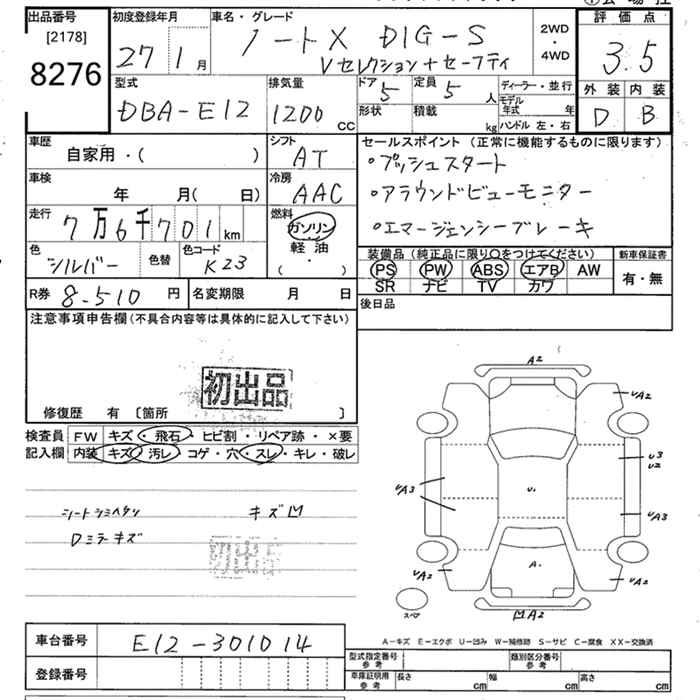 出品番号
[2178]
8276
初度登録年月
27年 1月
車名・グレード
ノートX DIG-S
Vセレクション+セーフティ
2WD
・
4WD
評価点
3.5
外装 内装
D B
型式
DBA-E12
排気量
1200 cc
ドア 5
定員 5 人
形状
積載 kg
ディーラー・並行
モデル年式 年
ハンドル 左・右
車歴
自家用・( )
シフト
AT
車検
年 月( 日)
冷房
AAC
走行
7万6千701km
燃料
ガソリン
軽油
( ・ )
色
シルバー
色替
色コード
K23
R券 8-510 円
名変期限 月 日
セールスポイント(正常に機能するものに限ります)
・プッシュスタート
・アラウンドビューモニター
・エマージェンシーブレーキ
装備品(純正品に限り○をつけてください)
新車保証書
PS PW ABS エアB AW
SR ナビ TV カワ
有・無
後日品
注意事項申告欄(不具合内容等は具体的に記入して下さい)
初出品
修復歴 有 〔箇所 〕
検査員記入欄
FW キズ・飛石・ヒビ割・リペア跡・×要
内装 キズ・汚レ・コゲ・穴・スレ・キレ・破レ
シートシミヘタリ キズ凹
Dミラーキズ
初出品
A2
UA2
U3
U2
UA3
U.
UA3
UA2
A.
UA2
スペア
凹A2
A-キズ E-エクボ U-凹み W-補修跡 S-サビ C-腐食 XX-交換済
車台番号
E12-301014
登録番号
型式指定番号
参考
類別区分番号
参考
車庫証明用
参考
長さ cm
幅 cm
高さ cm